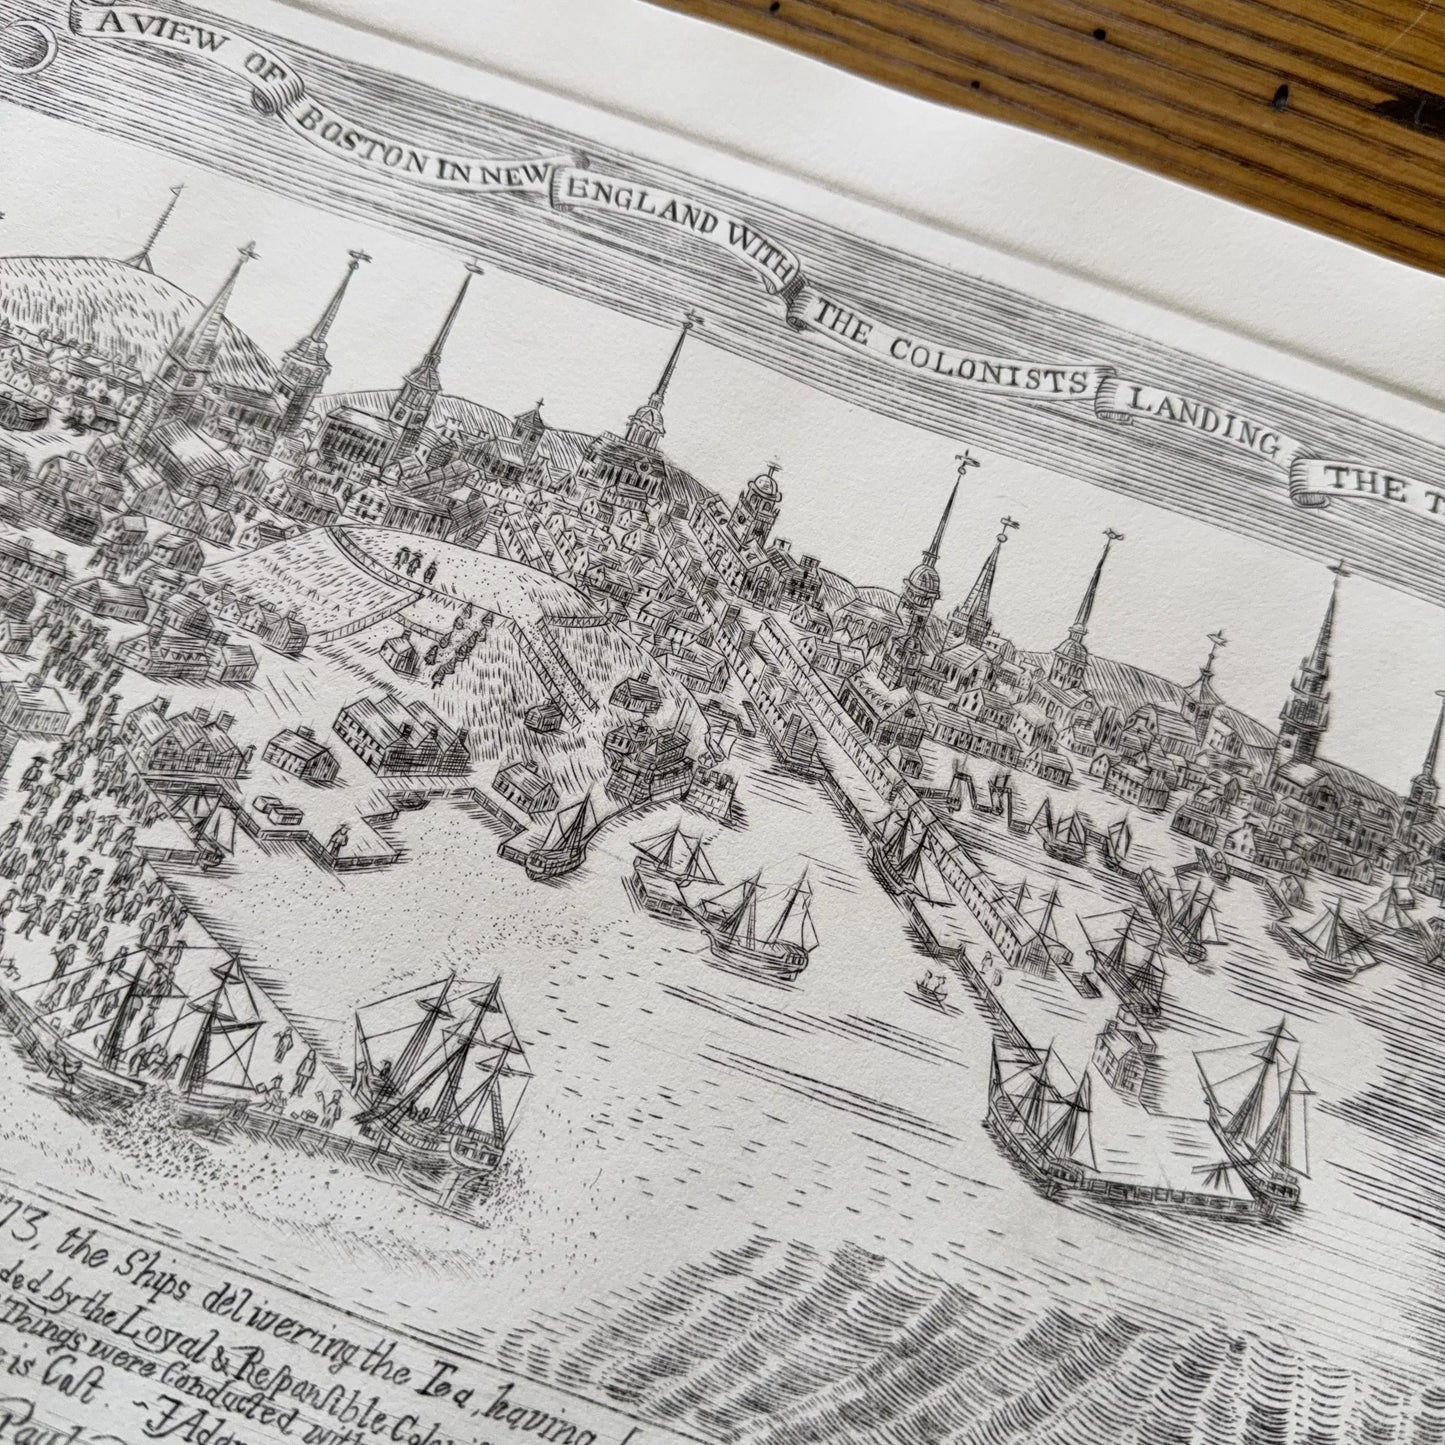 A VIEW OF BOSTON IN NEW ENGLAND WITH THE COLONISTS LANDING THE T
73, the Ships deliwering the Tea, having
ded by the Loyal & Reſpanſible Colo
Things were Conducted with
is Caſt. ~
Paul